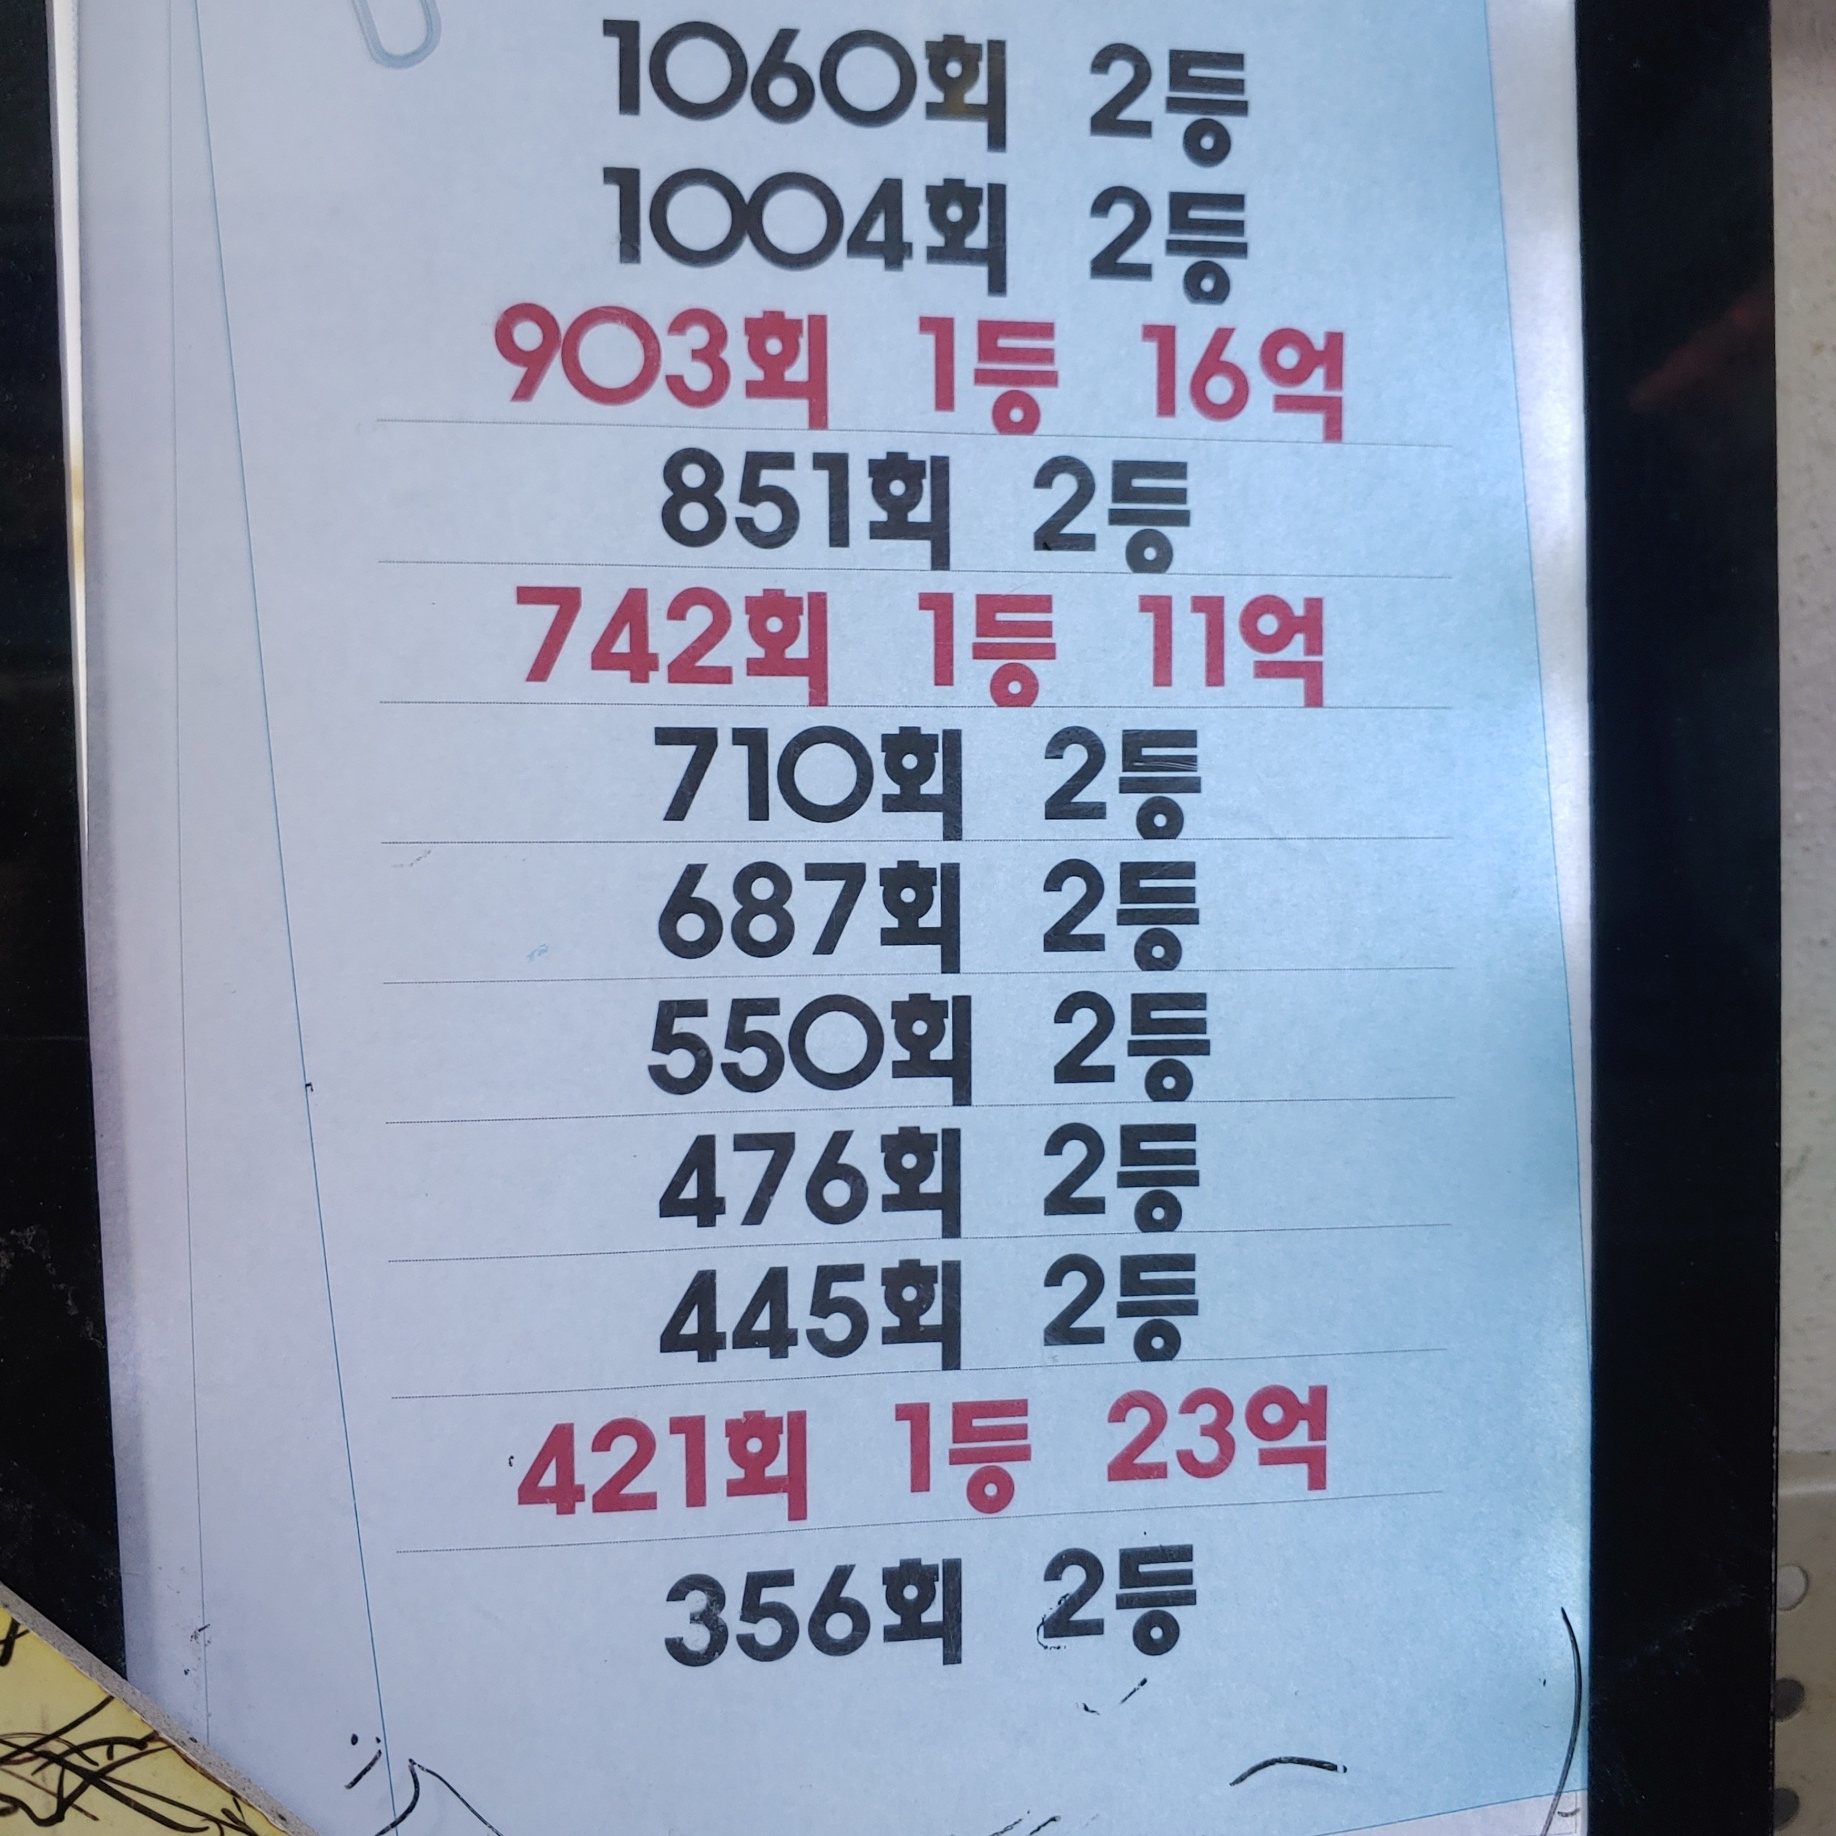 1060회 2등
1004회 2등
903회 1등 16억
851회 2등
742회 1등 11억
710회 2등
687회 2등
550회 2등
476회 2등
445회 2등
421회 1등 23억
356회 2등